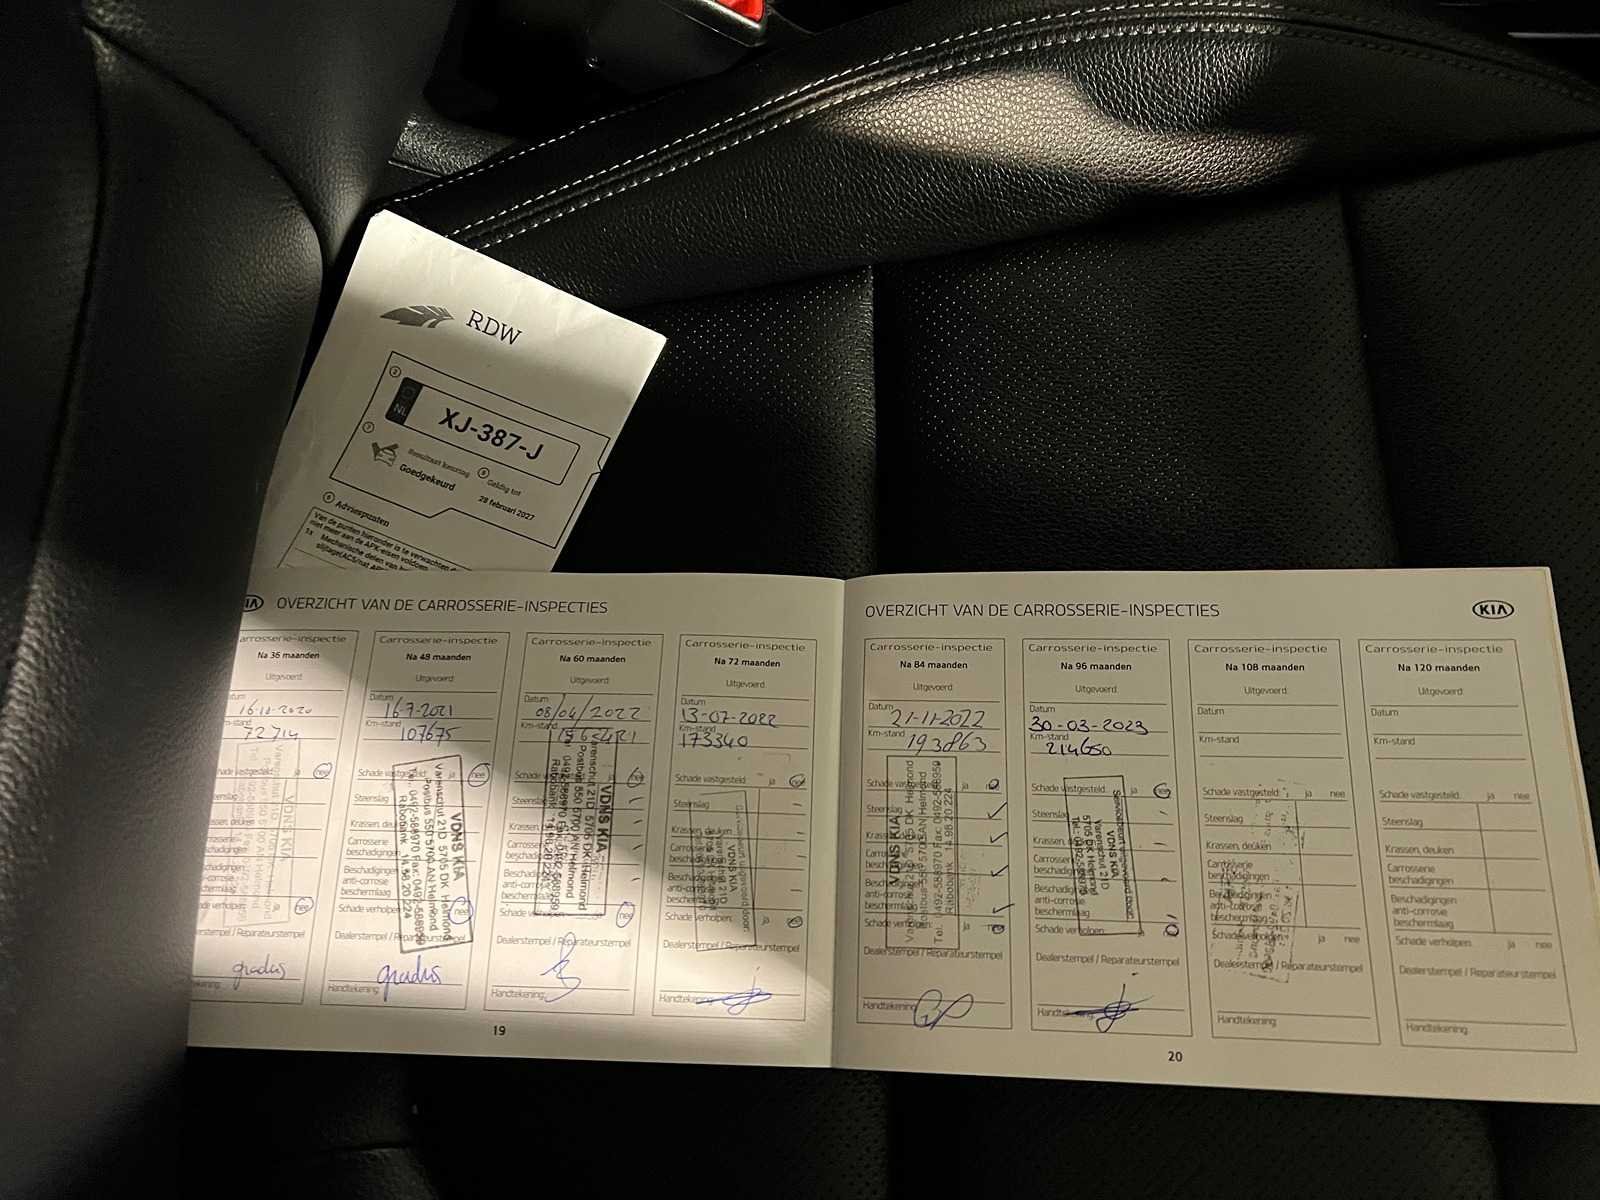 RDW
2
NL
XJ-387-J
7
Resultaat keuring
Goedgekeurd
8
Geldig tot
28 februari 2027
Adviespunten
Van de punten hieronder is te verwachten
niet meer aan de APK-eisen voldoen
1x Mechanische delen van
slijtage(AC5/nat
KIA OVERZICHT VAN DE CARROSSERIE-INSPECTIES
Carrosserie-inspectie
Na 36 maanden
Uitgevoerd:
Datum
16-11-2020
Km-stand
72714
Schade vastgesteld: ja nee
Steenslag
Krassen, deuken
Carrosserie
beschadigingen
Beschadigingen
anti-corrosie
beschermlaag
nee
Dealerstempel / Reparateurstempel
gradus
Handtekening:
Carrosserie-inspectie
Na 48 maanden
Uitgevoerd:
Datum
16-7-2021
Km-stand
107675
Schade vastgesteld: ja nee
Steenslag
Krassen, deuken
Carrosserie
beschadigingen
Beschadigingen
anti-corrosie
beschermlaag
Schade verholpen: nee
VDNS KIA
Varenschut 21D 5705 DK Helmond
Postbus 550 5700 AN Helmond
Tel. 0492-588970 Fax: 0492-588959
Rabobank 14.98.20.224
Dealerstempel / Reparateurstempel
gradus
Handtekening:
Carrosserie-inspectie
Na 60 maanden
Uitgevoerd:
Datum
08/04/2022
Km-stand
Schade vastgesteld: ja nee
Steenslag
Krassen, deuken
Carrosserie
beschadigingen
Beschadigingen
anti-corrosie
beschermlaag
Schade verholpen: nee
VDNS KIA
Varenschut 21D 5705 DK Helmond
Postbus 550 5700 AN Helmond
Tel. 0492-588970 Fax: 0492-588959
Rabobank 14.98.20.224
Dealerstempel / Reparateurstempel
Handtekening:
Carrosserie-inspectie
Na 72 maanden
Uitgevoerd:
Datum
13-07-2022
Km-stand
173340
Schade vastgesteld: ja nee
Steenslag
Krassen, deuken
Carrosserie
beschadigingen
Beschadigingen
anti-corrosie
beschermlaag
Schade verholpen: ja nee
VDNS KIA
Dealerstempel / Reparateurstempel
Handtekening:
19
OVERZICHT VAN DE CARROSSERIE-INSPECTIES KIA
Carrosserie-inspectie
Na 84 maanden
Uitgevoerd:
Datum
21-11-2022
Km-stand
193863
Schade vastgesteld:
Steenslag
Krassen, deuken
Carrosserie
beschadigingen
Beschadigingen
anti-corrosie
beschermlaag
Schade verholpen:
VDNS KIA
Varenschut 21D 5705 DK Helmond
Postbus 550 5700 AN Helmond
Tel. 0492-588970 Fax: 0492-588959
Rabobank 14.98.20.224
Dealerstempel / Reparateurstempel
Handtekening:
Carrosserie-inspectie
Na 96 maanden
Uitgevoerd:
Datum
30-03-2023
Km-stand
214650
Schade vastgesteld:
Steenslag
Krassen, deuken
Carrosserie
beschadigingen
Beschadigingen
anti-corrosie
beschermlaag
Schade verholpen:
Servicebeurt uitgevoerd door:
VDNS KIA
Varenschut 21 D
5705 DK Helmond
Dealerstempel / Reparateurstempel
Handtekening:
Carrosserie-inspectie
Na 108 maanden
Uitgevoerd:
Datum
Km-stand
Schade vastgesteld: ja nee
Steenslag
Krassen, deuken
Carrosserie
beschadigingen
Beschadigingen
anti-corrosie
beschermlaag
Schade verholpen: ja nee
Dealerstempel / Reparateurstempel
Handtekening:
Carrosserie-inspectie
Na 120 maanden
Uitgevoerd:
Datum
Km-stand
Schade vastgesteld: ja nee
Steenslag
Krassen, deuken
Carrosserie
beschadigingen
Beschadigingen
anti-corrosie
beschermlaag
Schade verholpen: ja nee
Dealerstempel / Reparateurstempel
Handtekening:
20